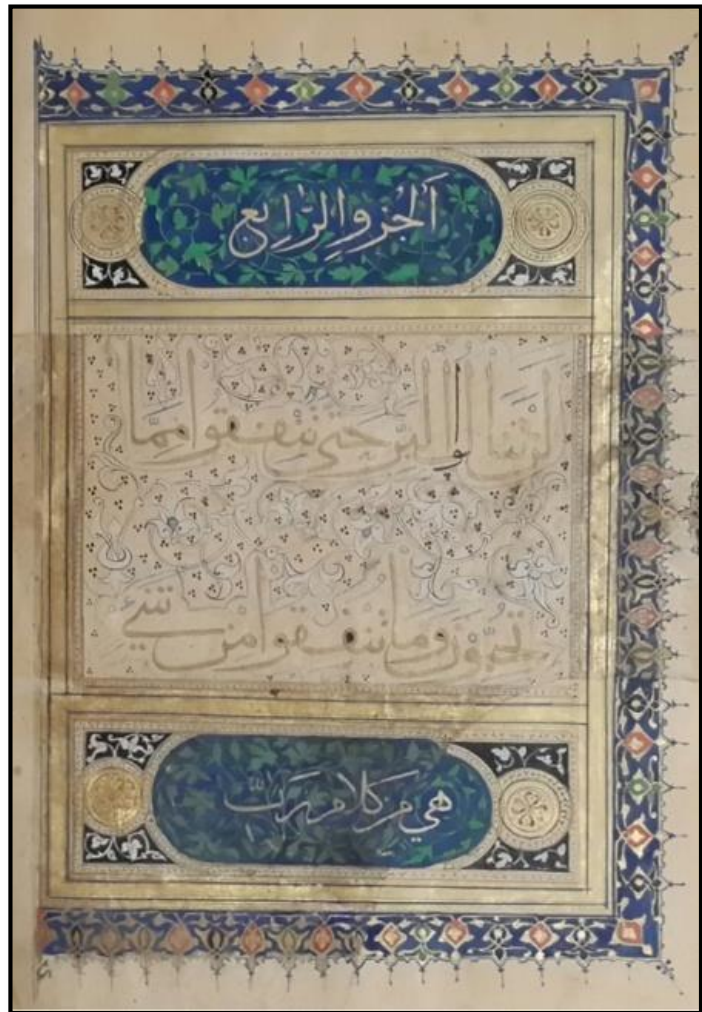 اَلْجُزوِالرَّابِع
لَن تنالوا البِرَّ حَتى تُنفِقوا مِمَّا
تُحِبُّونَ وما تُنفِقوا مِن شَيْءٍ
هي مَن كلام رَبِّ